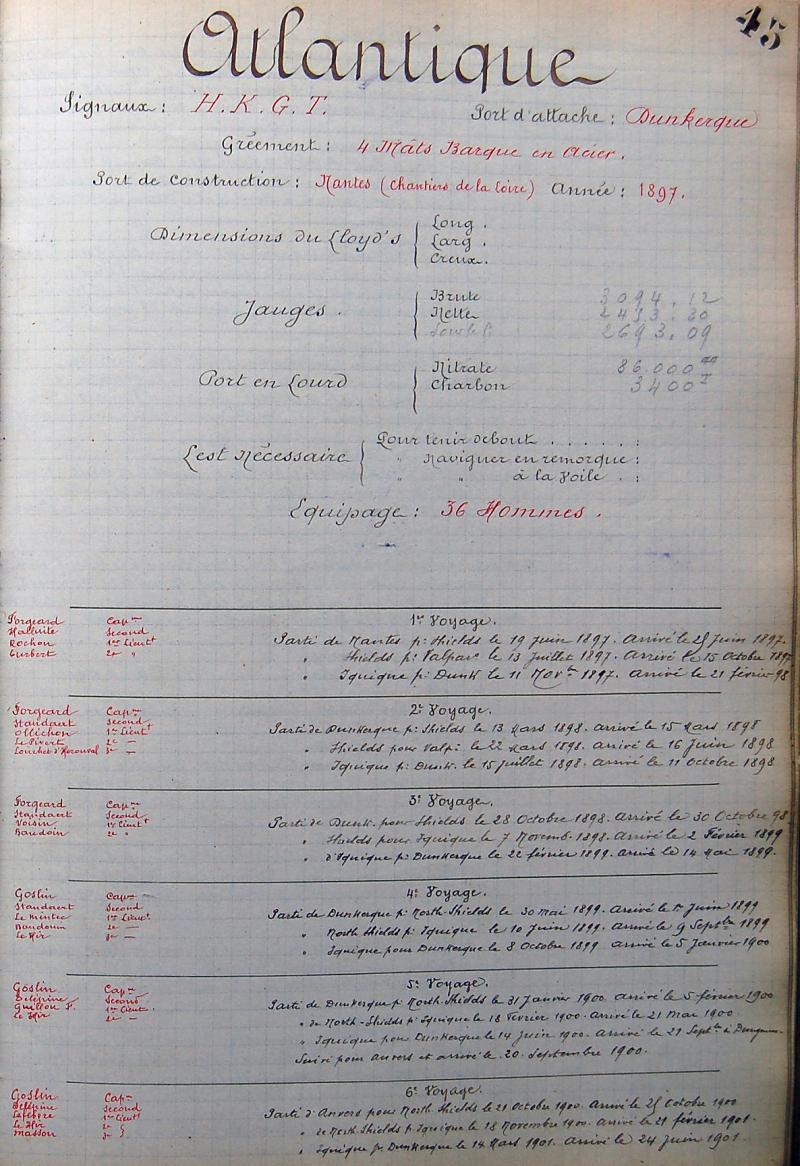 45
Atlantique
Signaux : H. K. G. T. Port d'attache : Dunkerque
Gréement : 4 Mâts Barque en Acier.
Port de Construction : Nantes (Chantiers de la Loire) Année : 1897.
Dimensions du Lloyd's { Long.
Larg.
Creux.
Jauges. { Brute 3094.12
Nette 2453.30
2693.09
Port en Lourd { Nitrate 86.000
Charbon 3400
Lest Nécessaire { Pour tenir debout . . . . . . :
" Naviguer en remorque :
" " à la Voile . :
Equipage : 36 Hommes.
1er Voyage.
Forgeard Capne
Malluite Second
Rochon 1er Lieutt
Guibert 2e "
Parti de Nantes pr Shields le 19 Juin 1897. Arrivé le 25 Juin 1897.
" Shields pr Valparo le 13 Juillet 1897. Arrivé le 15 Octobre 1897
" Iquique pr Dunk le 11 Novbre 1897. Arrivé le 21 février 98
2e Voyage.
Forgeard Capne
Standaert Second
Ollichon 1er Lieutt
Le Pivert 2e —
Louchet d'Hérouval 3e —
Parti de Dunkerque pr Shields le 13 Mars 1898. arrivé le 15 Mars 1898
" Shields pour Valpo le 22 Mars 1898. Arrivé le 16 Juin 1898
" Iquique pr Dunk. le 15 Juillet 1898. Arrivé le 11 Octobre 1898
3e Voyage.
Forgeard Capne
Standaert Second
Voisin 1er Lieutt
Baudoin 2e "
Parti de Dunk. pour Shields le 28 Octobre 1898. Arrivé le 30 Octobre 98
" Shields pour Iquique le 7 Novemb. 1898. Arrivé le 2 Février 1899
" d'Iquique pr Dunkerque le 22 février 1899. Arrivé le 14 Mai 1899.
4e Voyage.
Goslin Capne
Standaert Second
Le Mintec 1er Lieutt
Baudouin 2e —
Le Hir 3e —
Parti de Dunkerque pr North-Shields le 30 Mai 1899. Arrivé le 1er Juin 1899
" North Shields pr Iquique le 10 Juin 1899. Arrivé le 9 Septbre 1899
" Iquique pour Dunkerque le 8 Octobre 1899 Arrivé le 5 Janvier 1900
5e Voyage.
Goslin Capne
Delépine Second
Guillou F. 1er Lieut.
Le Hir 2e —
Parti de Dunkerque pr North Shields le 31 Janvier 1900. Arrivé le 5 février 1900
" de North-Shields pr Iquique le 18 Février 1900. Arrivé le 21 Mai 1900
" Iquique pour Dunkerque le 14 Juin 1900. Arrivé le 21 Septbre à
Suivi pour Anvers et arrivé le 20. Septembre 1900.
6e Voyage.
Goslin Capne
Delépine Second
Lefebvre 1er Lieutt
Le Hir 2e
Masson 3e
Parti d'Anvers pour North-Shields le 21 Octobre 1900. Arrivé le 25 Octobre 1900
" de North Shields pr Iquique le 18 Novembre 1900. Arrivé le 21 février 1901.
" Iquique pr Dunkerque le 14 Mars 1901. Arrivé le 24 Juin 1901.